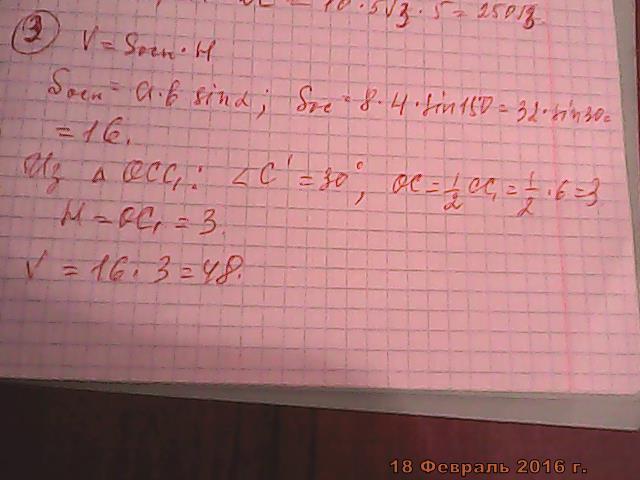 = 10·5√3·5=250√3.
③ V=Sосн·H
Sосн=a·b sinα; Sос=8·4·sin150=32·sin30=
=16.
Из △ OCC₁: ∠C'=30°, OC=½CC₁=½·6=3
H=OC₁=3.
V=16·3=48.
18 Февраль 2016 г.